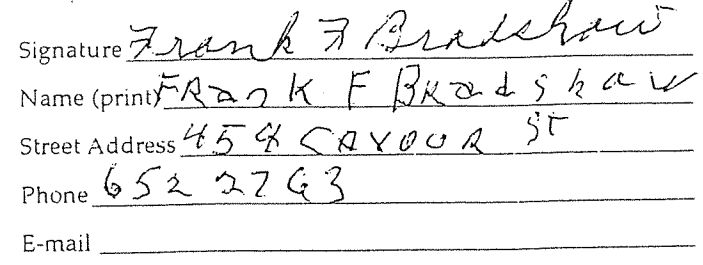 Signature Frank F Bradshaw
Name (print) FRank F BRadshaw
Street Address 454 CAVOUR St
Phone 652 2763
E-mail